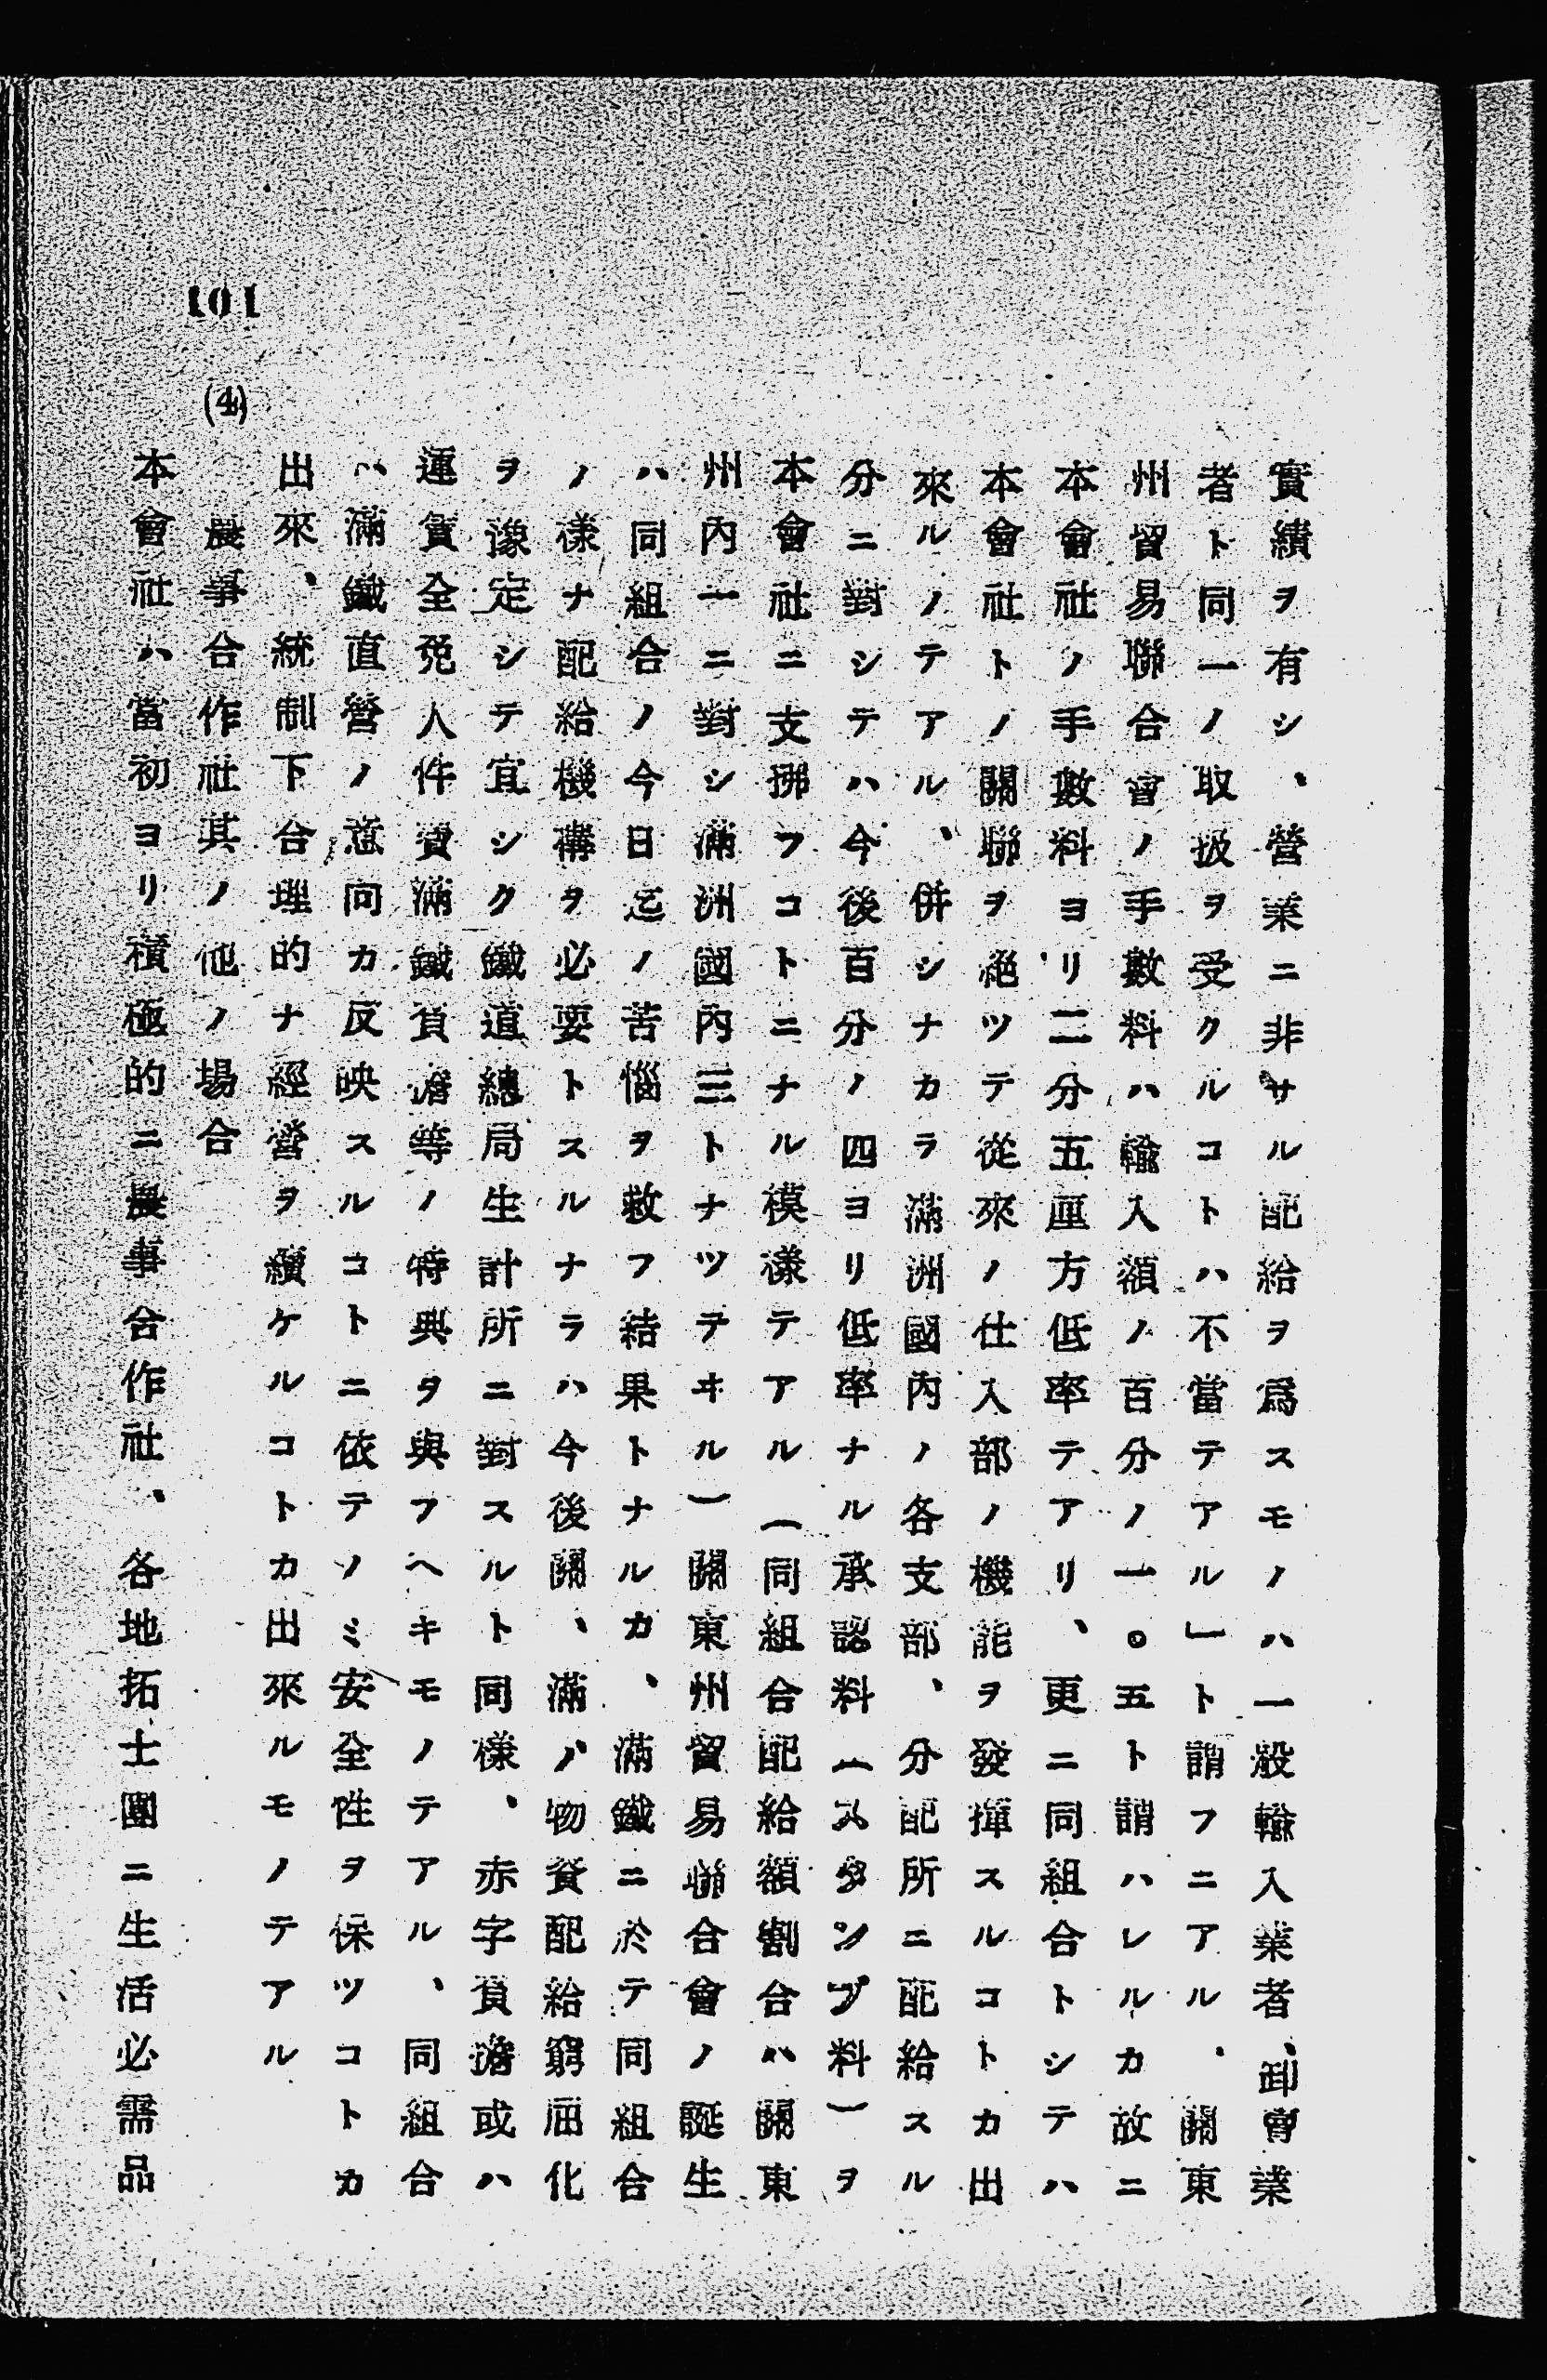 實績ヲ有シ、營業ニ非サル配給ヲ爲スモノハ一般輸入業者、卸賣業
者ト同一ノ取扱ヲ受クルコトハ不當テアル」ト謂フニアル、關東
州貿易聯合會ノ手數料ハ輸入額ノ百分ノ一。五ト謂ハレルカ故ニ
本會社ノ手數料ヨリ二分五厘方低率テアリ、更ニ同組合トシテハ
本會社トノ關聯ヲ絕ツテ從來ノ仕入部ノ機能ヲ發揮スルコトカ出
來ルノテアル、併シナカラ滿洲國內ノ各支部、分配所ニ配給スル
分ニ對シテハ今後百分ノ四ヨリ低率ナル承認料(スタンプ料)ヲ
本會社ニ支拂フコトニナル模樣テアル(同組合配給額割合ハ關東
州內一ニ對シ滿洲國內三トナツテヰル)關東州貿易聯合會ノ誕生
ハ同組合ノ今日迄ノ苦惱ヲ救フ結果トナルカ、滿鐵ニ於テ同組合
ノ樣ナ配給機構ヲ必要トスルナラハ今後關、滿ノ物資配給窮屈化
ヲ豫定シテ宜シク鐵道總局生計所ニ對スルト同樣、赤字負擔或ハ
運賃全免人件費滿鐵負擔等ノ特典タ與フヘキモノテアル、同組合
ハ滿鐵直營ノ意向カ反映スルコトニ依テノミ安全性ヲ保ツコトカ
出來、統制下合理的ナ經營ヲ續ケルコトカ出來ルモノテアル
(4) 農事合作社其ノ他ノ場合
本會社ハ當初ヨリ積極的ニ農事合作社、各地拓士團ニ生活必需品
101